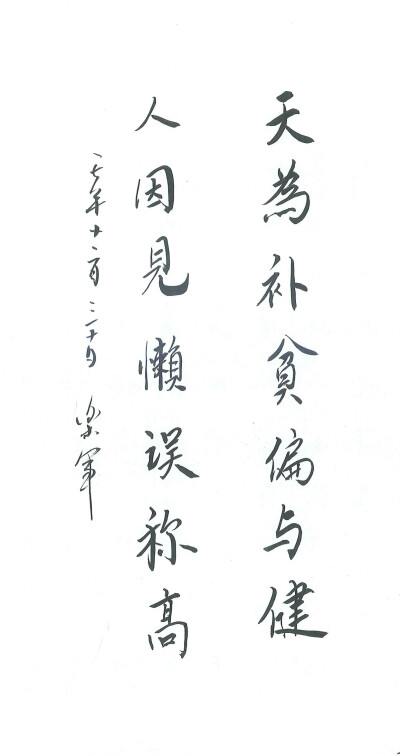 天為补貧偏与健
人因見懶误称高
一七年十二月三十日 栾军